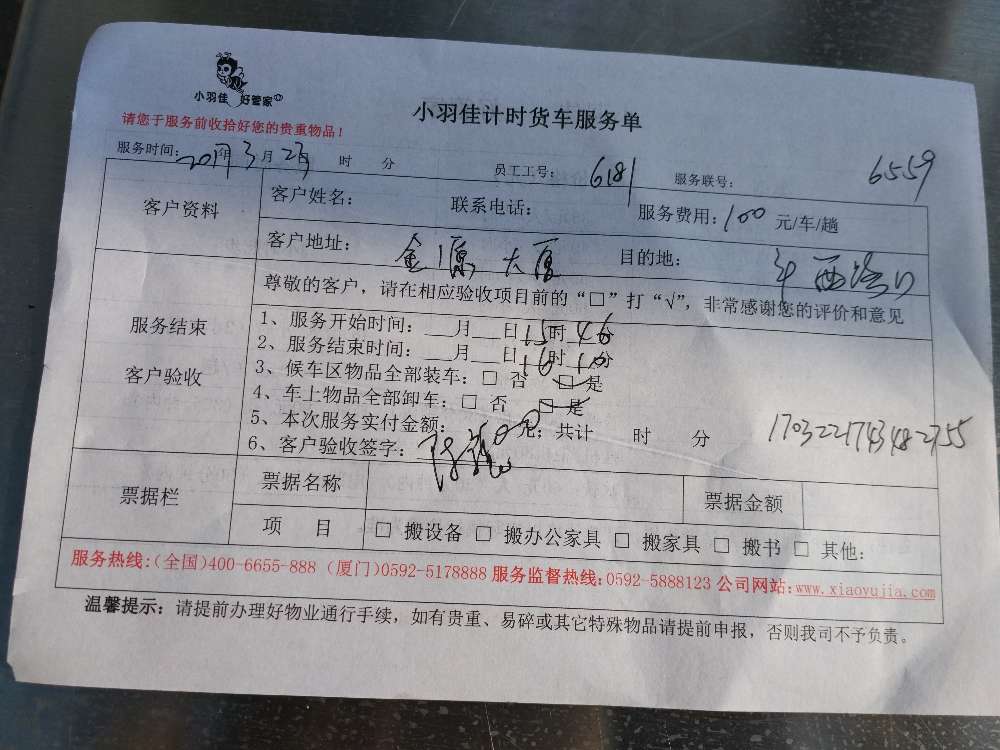 小羽佳 好管家
小羽佳计时货车服务单
请您于服务前收拾好您的贵重物品!
服务时间: 年3月2 时 分 员工工号: 6181 服务联号: 6559
客户资料
客户姓名: 联系电话: 服务费用: 100 元/车/趟
客户地址: 金源大厦 目的地: 西路口
服务结束
客户验收
尊敬的客户,请在相应验收项目前的“□”打“√”,非常感谢您的评价和意见
1、服务开始时间: __月__日15时46分
2、服务结束时间: __月__日16时10分
3、候车区物品全部装车: □ 否 □ 是
4、车上物品全部卸车: □ 否 □ 是
5、本次服务实付金额: 元; 共计 时 分
6、客户验收签字:
1703221743482755
票据栏
票据名称 票据金额
项 目 □ 搬设备 □ 搬办公家具 □ 搬家具 □ 搬书 □ 其他:
服务热线:(全国)400-6655-888 (厦门)0592-5178888 服务监督热线:0592-5888123 公司网站:www.xiaoyujia.com
温馨提示: 请提前办理好物业通行手续,如有贵重、易碎或其它特殊物品请提前申报,否则我司不予负责。